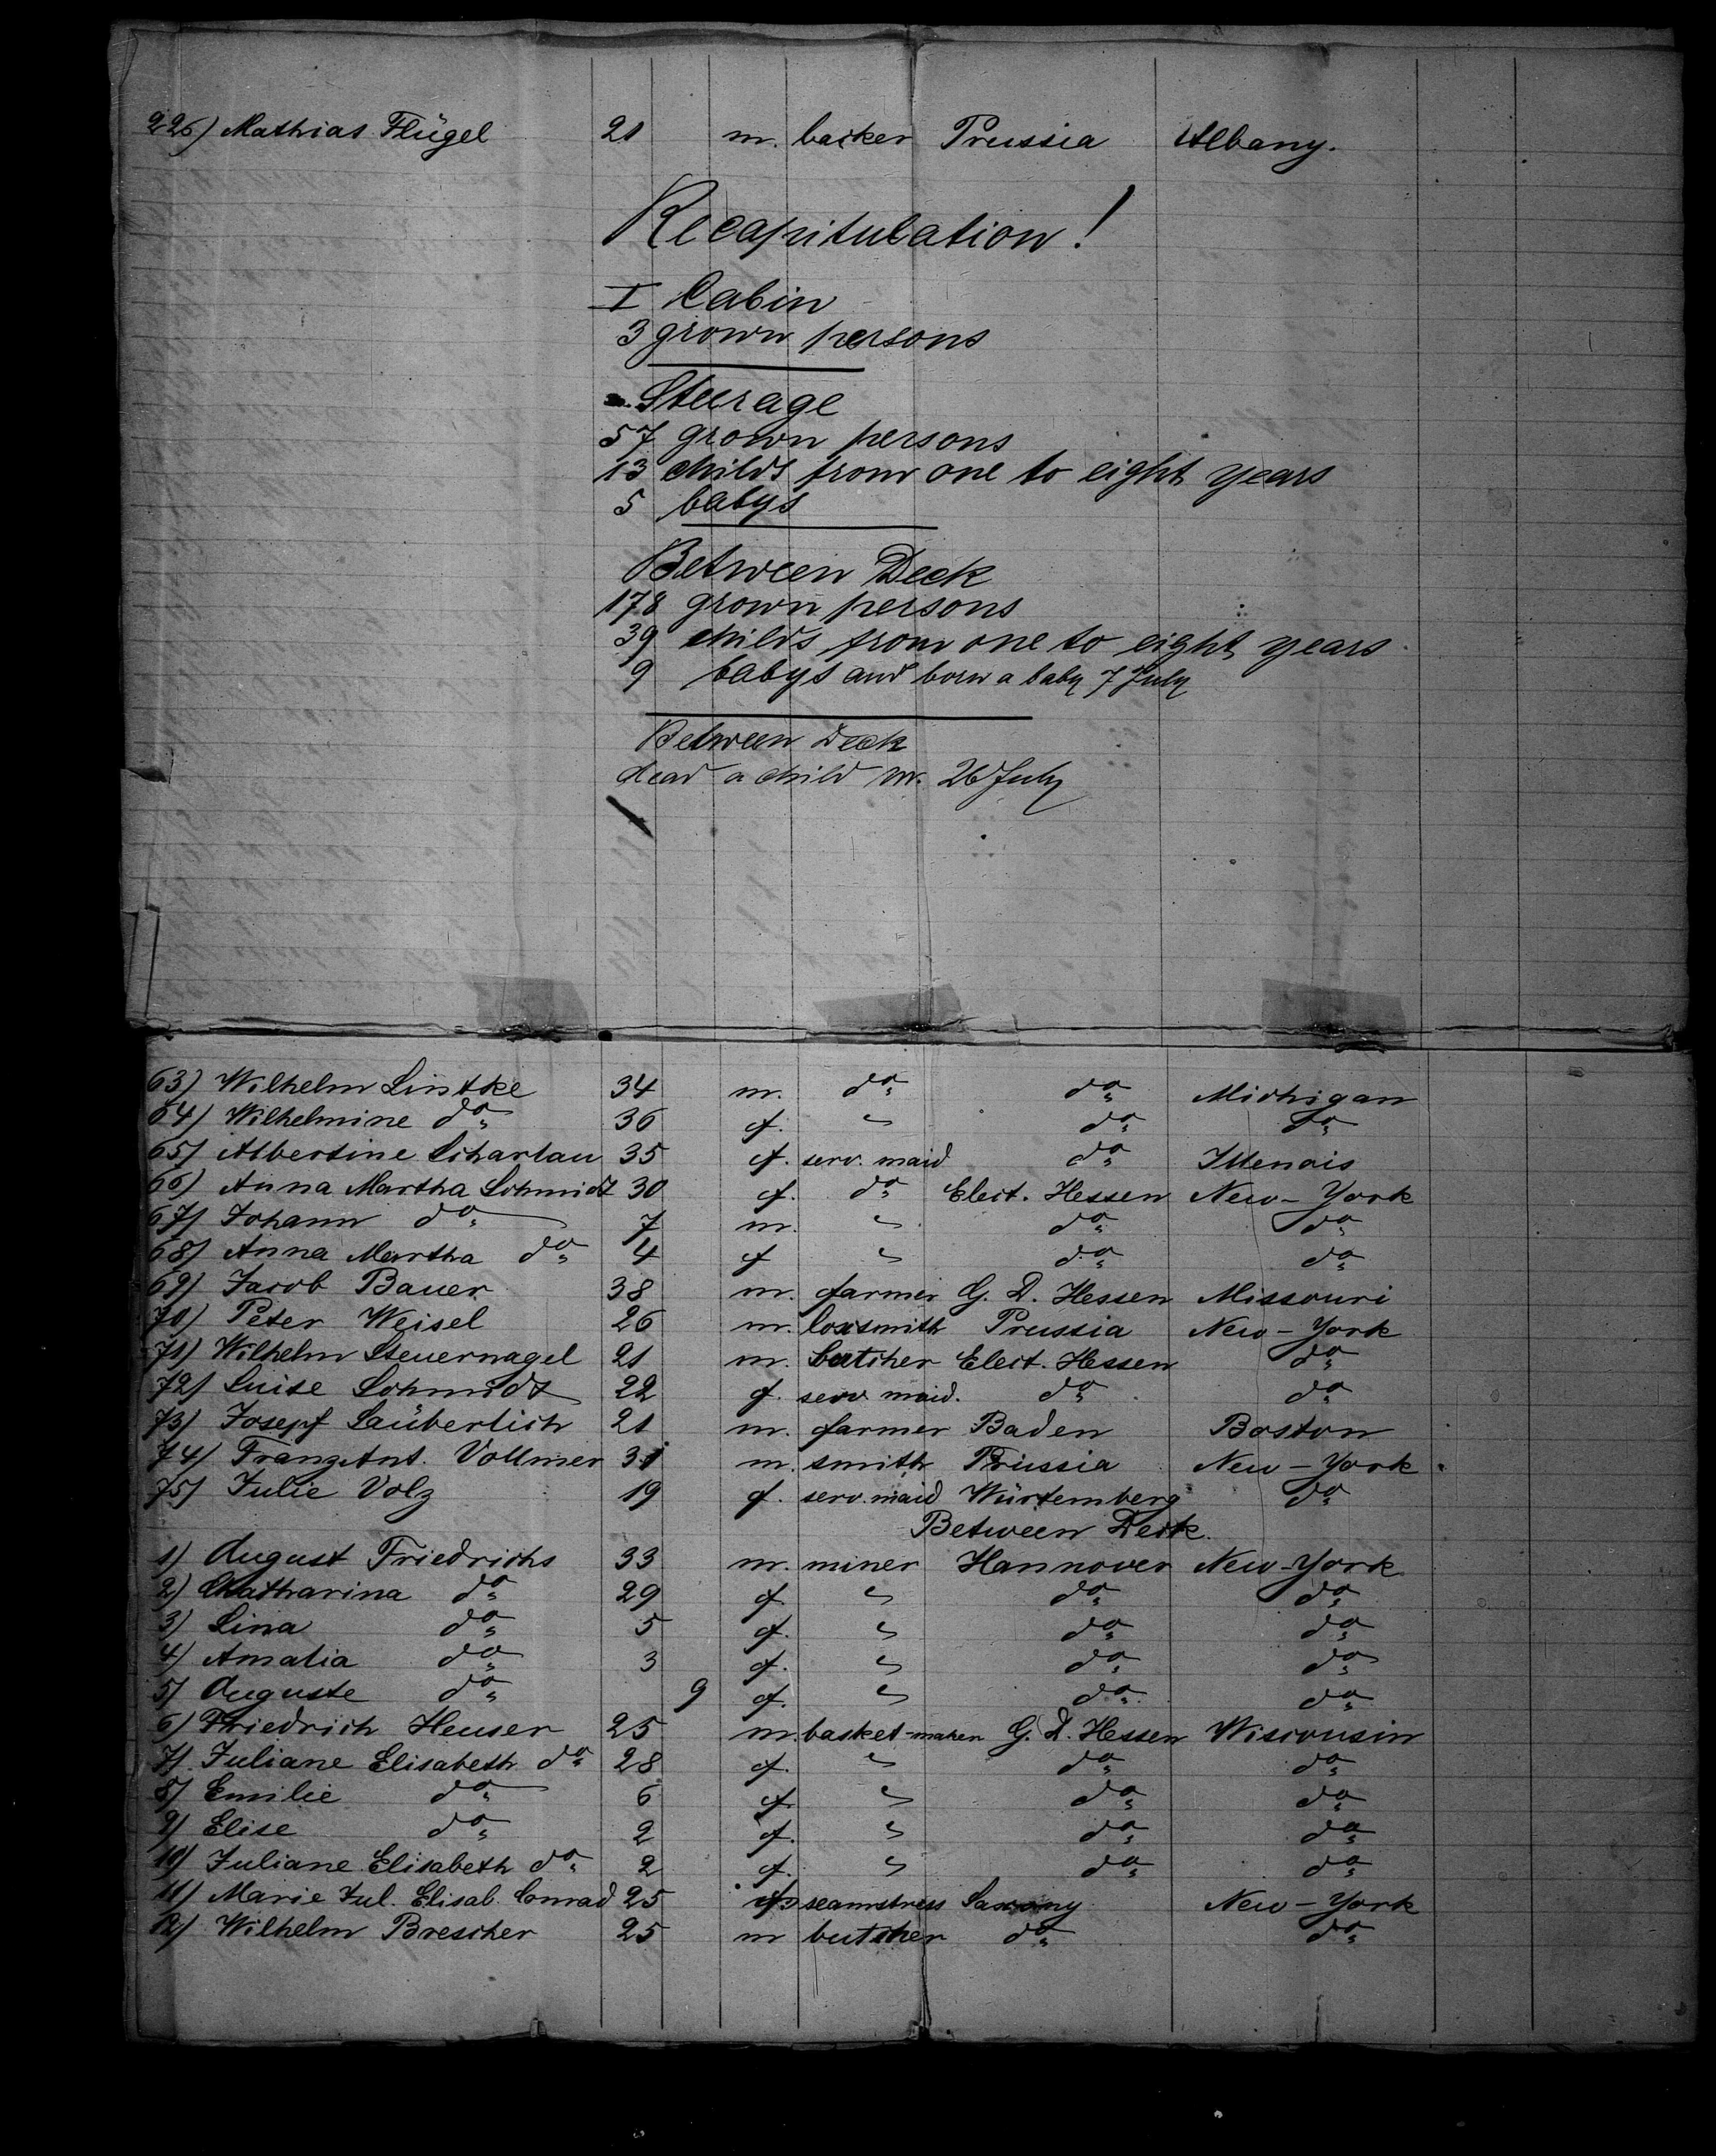 226) Mathias Flügel 21 m. backer Prussia Albany.
Recapitulation!
I Cabin
3 grown persons
Steerage
57 grown persons
13 childs from one to eight years
5 babys
Between Deck
178 grown persons
39 childs from one to eight years
9 babys and born a baby 7 July
Between Deck
dead a child m. 26 July
63) Wilhelm Lintke 34 m. do do Michigan
64) Wilhelmine do 36 f. " do do
65) Albertine Scharlau 35 f. serv. maid do Illenois
66) Anna Martha Schmidt 30 f. do Elect. Hessen New-York
67) Johann do 7 m. " do do
68) Anna Martha do 4 f " do do
69) Jacob Bauer 38 m. farmer G. D. Hessen Missouri
70) Peter Weisel 26 m. loxsmith Prussia New-York
71) Wilhelm Steuernagel 21 m. butcher Elect. Hessen do
72) Luise Schmidt 22 f. serv maid. do do
73) Josepf Säuberlich 21 m. farmer Baden Boston
74) Franz Ant. Vollmer 31 m. smith Prussia New-York
75) Julie Volz 19 f. serv. maid Würtemberg do
Between Deck.
1) August Friedrichs 33 m. miner Hannover New-York
2) Chatharina do 29 f. " do do
3) Lina do 5 f. " do do
4) Amalia do 3 f. " do do
5) Auguste do 9 f. " do do
6) Friedrich Heuser 25 m. basket-maker G. D. Hessen Wisconsin
7) Juliane Elisabeth do 28 f. " do do
8) Emilie do 6 f. " do do
9) Elise do 2 f. " do do
10) Juliane Elisabeth do 2 f. " do do
11) Marie Jul. Elisab. Conrad 25 f. seamstress Saxony New-York
12) Wilhelm Brescher 25 m butcher do do